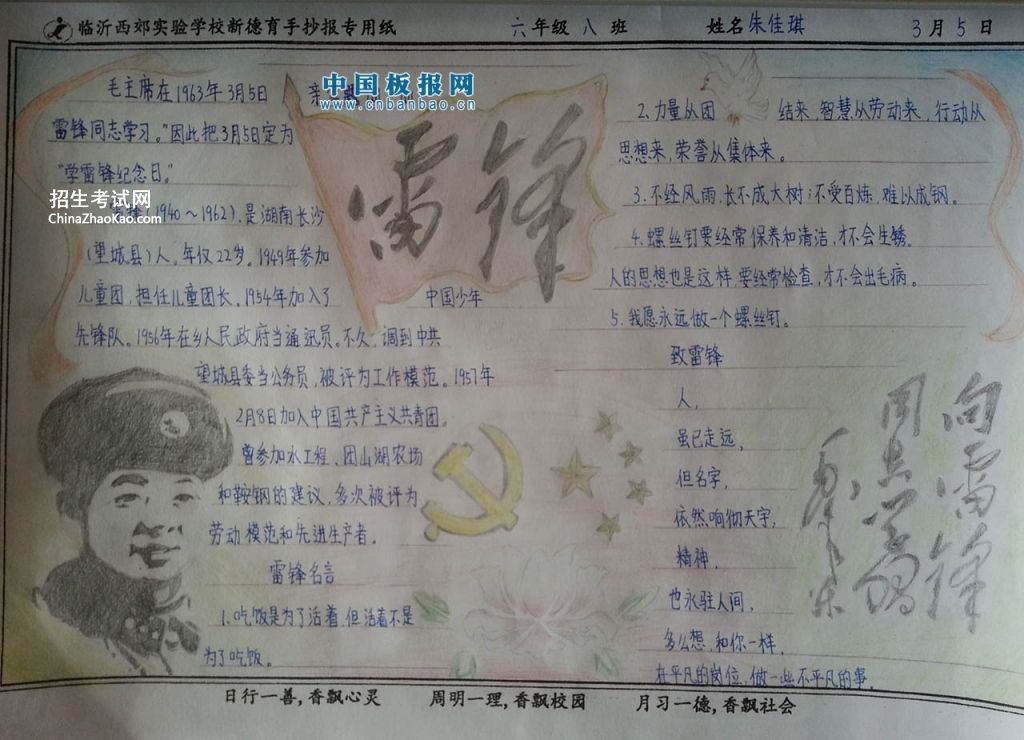 临沂西郊实验学校新德育手抄报专用纸 六年级 八 班 姓名 朱佳琪 3月5日
中国板报网
www.cnbanbao.cn
招生考试网
ChinaZhaoKao.com
毛主席在1963年3月5日 亲
雷锋同志学习。"因此把3月5日定为
"学雷锋纪念日。"
(1940～1962),是湖南长沙
(望城县)人。年仅22岁。1949年参加
儿童团,担任儿童团长。1954年加入了 中国少年
先锋队。1956年在乡人民政府当通迅员。不久,调到中共
望城县委当公务员,被评为工作模范。1957年
2月8日加入中国共产主义共青团。
曾参加水工程、团山湖农场
和鞍钢的建议,多次被评为
劳动模范和先进生产者。
雷锋名言
1.吃饭是为了活着,但活着不是
为了吃饭。
雷锋
2.力量从团 结来,智慧从劳动来,行动从
思想来,荣誉从集体来。
3.不经风雨,长不成大树;不受百炼,难以成钢。
4.螺丝钉要经常保养和清洁,才不会生锈。
人的思想也是这样,要经常检查,才不会出毛病。
5.我愿永远做一个螺丝钉。
致雷锋
人,
虽已走远,
但名字,
依然响彻天宇,
精神,
也永驻人间,
多么想,和你一样,
在平凡的岗位,做一些不平凡的事。
向雷锋
同志学习
毛泽东
日行一善,香飘心灵 周明一理,香飘校园 月习一德,香飘社会